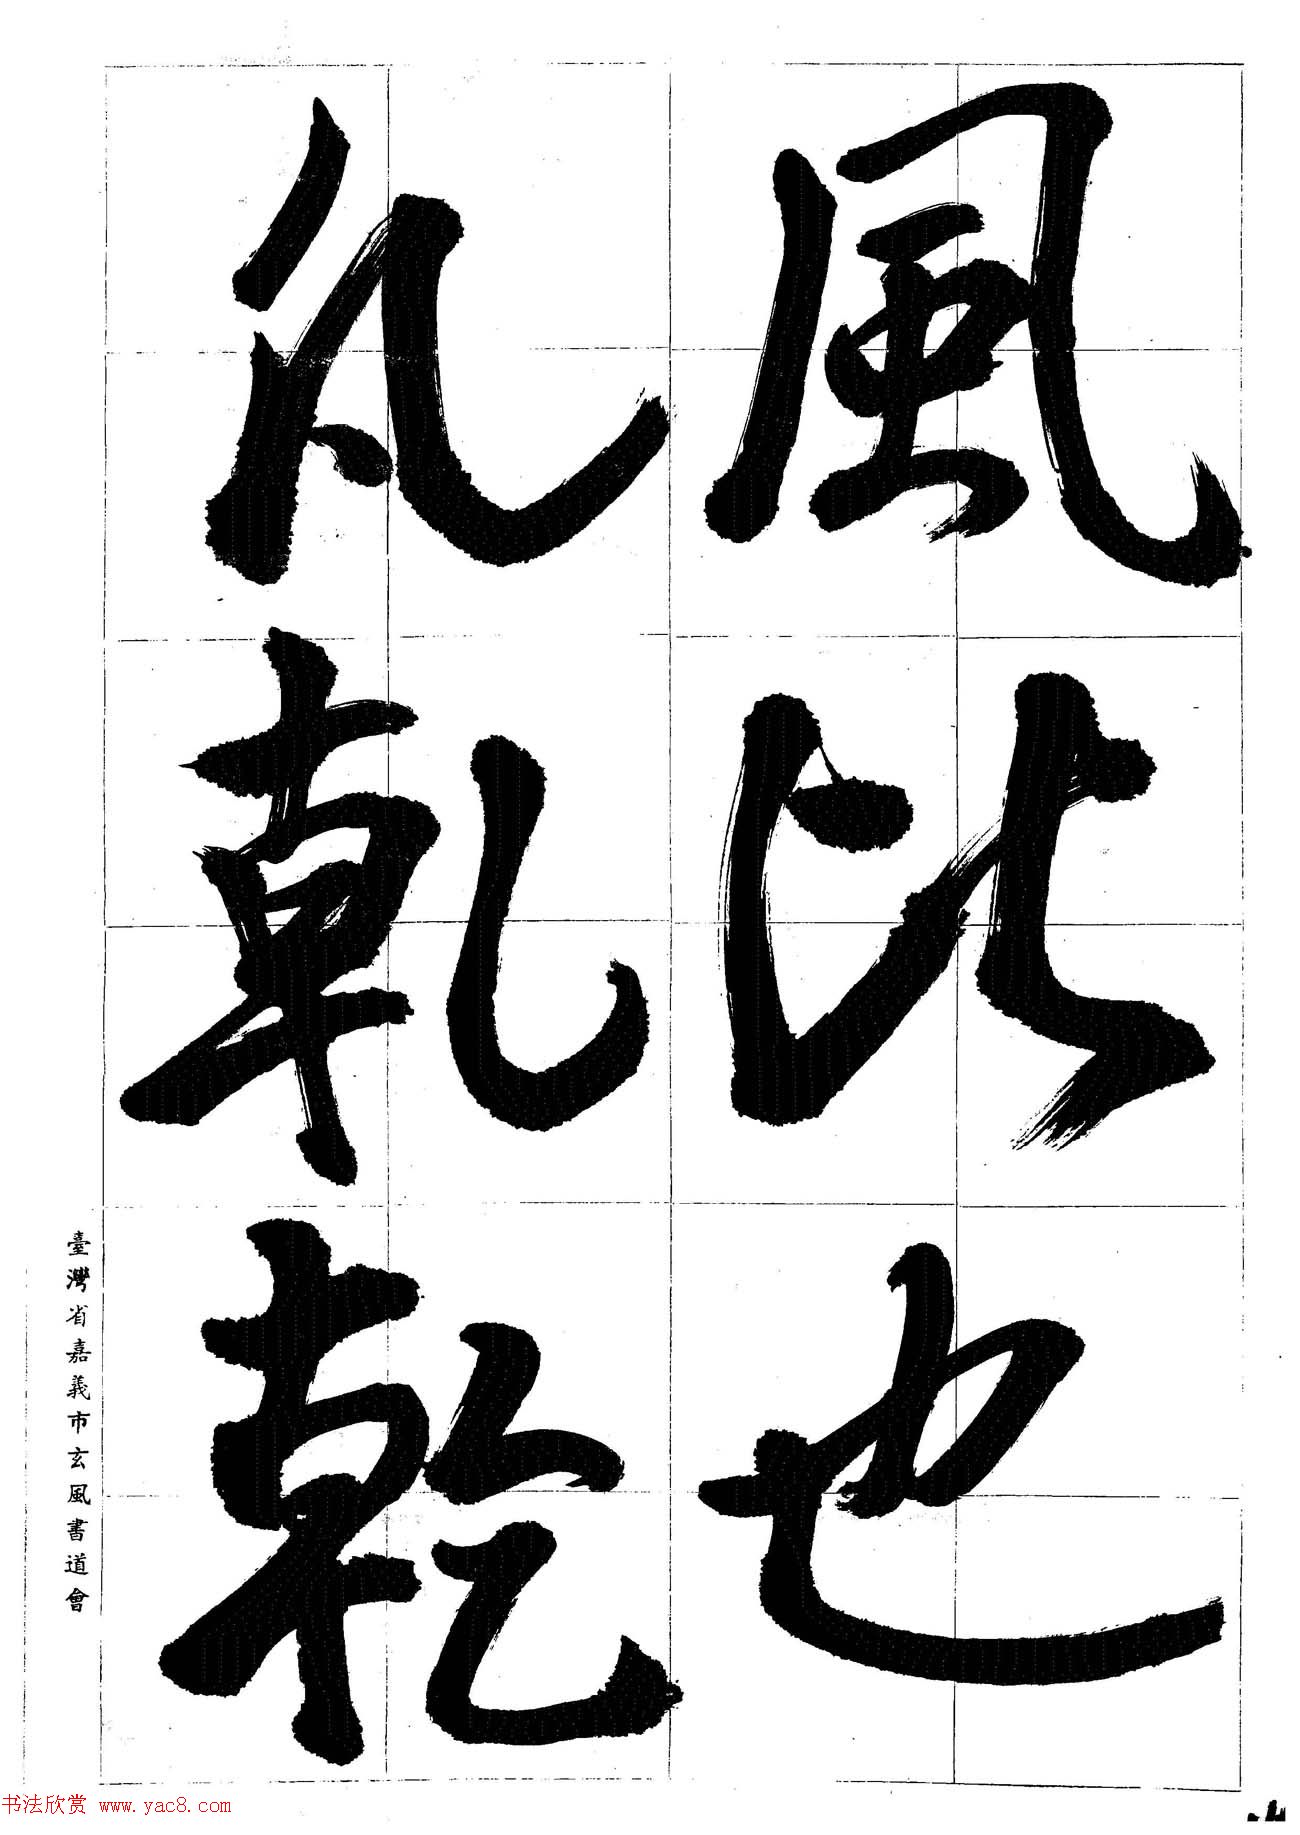 風比也
乹乾
臺灣省嘉義市玄風書道會
书法欣赏 www.yac8.com